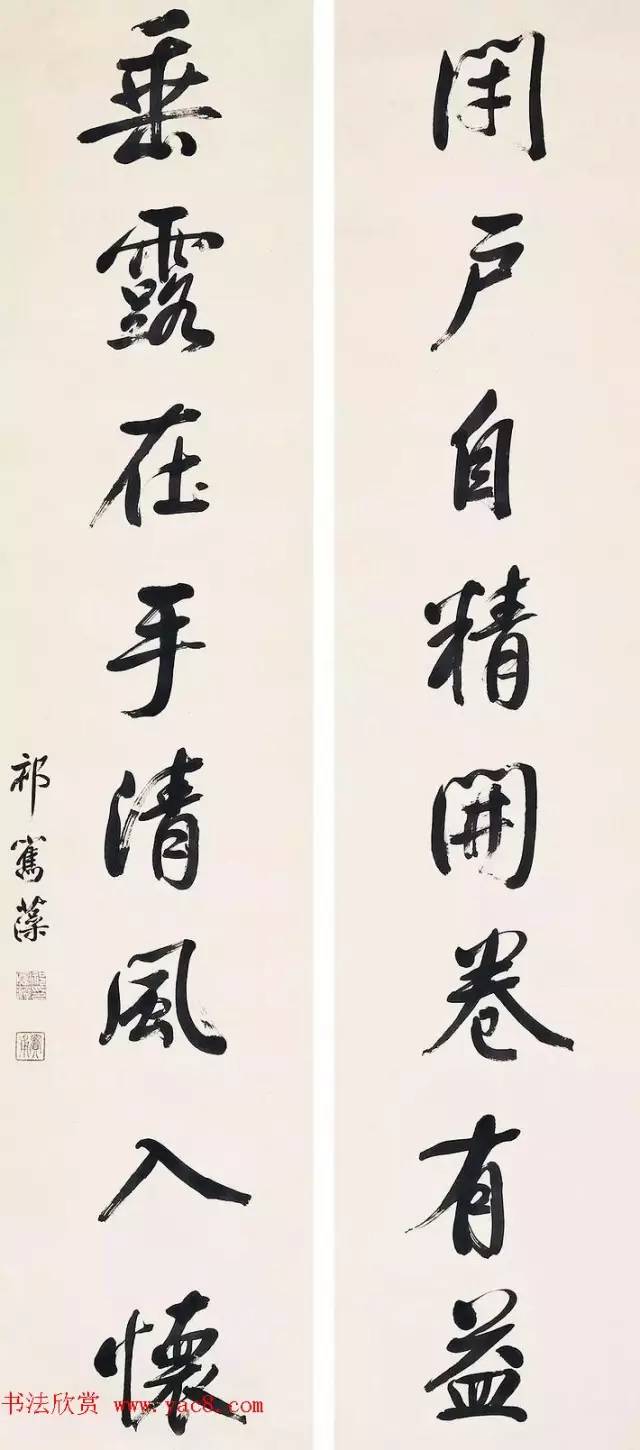 閉户自精開卷有益
垂露在手清風入懷
祁寯藻
书法欣赏 www.yac8.com